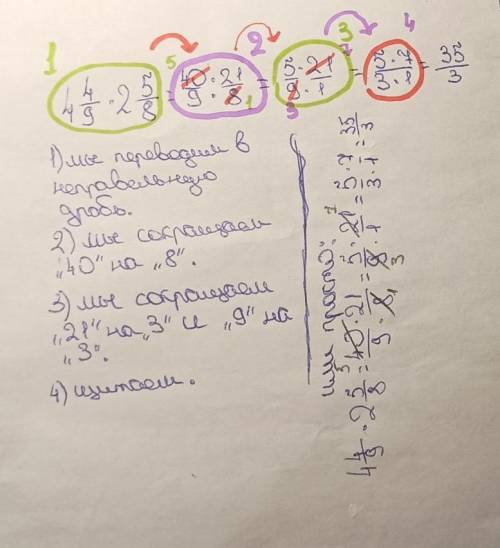 1 2 3 4
4 4/9 · 2 5/8 = 40 · 21 / 9 · 8 = 5 · 21 / 9 · 1 = 5 · 7 / 3 · 1 = 35/3
5 1 7 3
1) мы переводим в
неправельную
дробь.
2) мы сокращаем
„40“ на „8“.
3) мы сокращаем
„21“ на „3“ и „9“ на
„3“.
4) щитаем.
или просто:
4 4/9 · 2 5/8 = 40 · 21 / 9 · 8 = 5 · 21 / 9 · 1 = 5 · 7 / 3 · 1 = 35/3
5 1 7 3